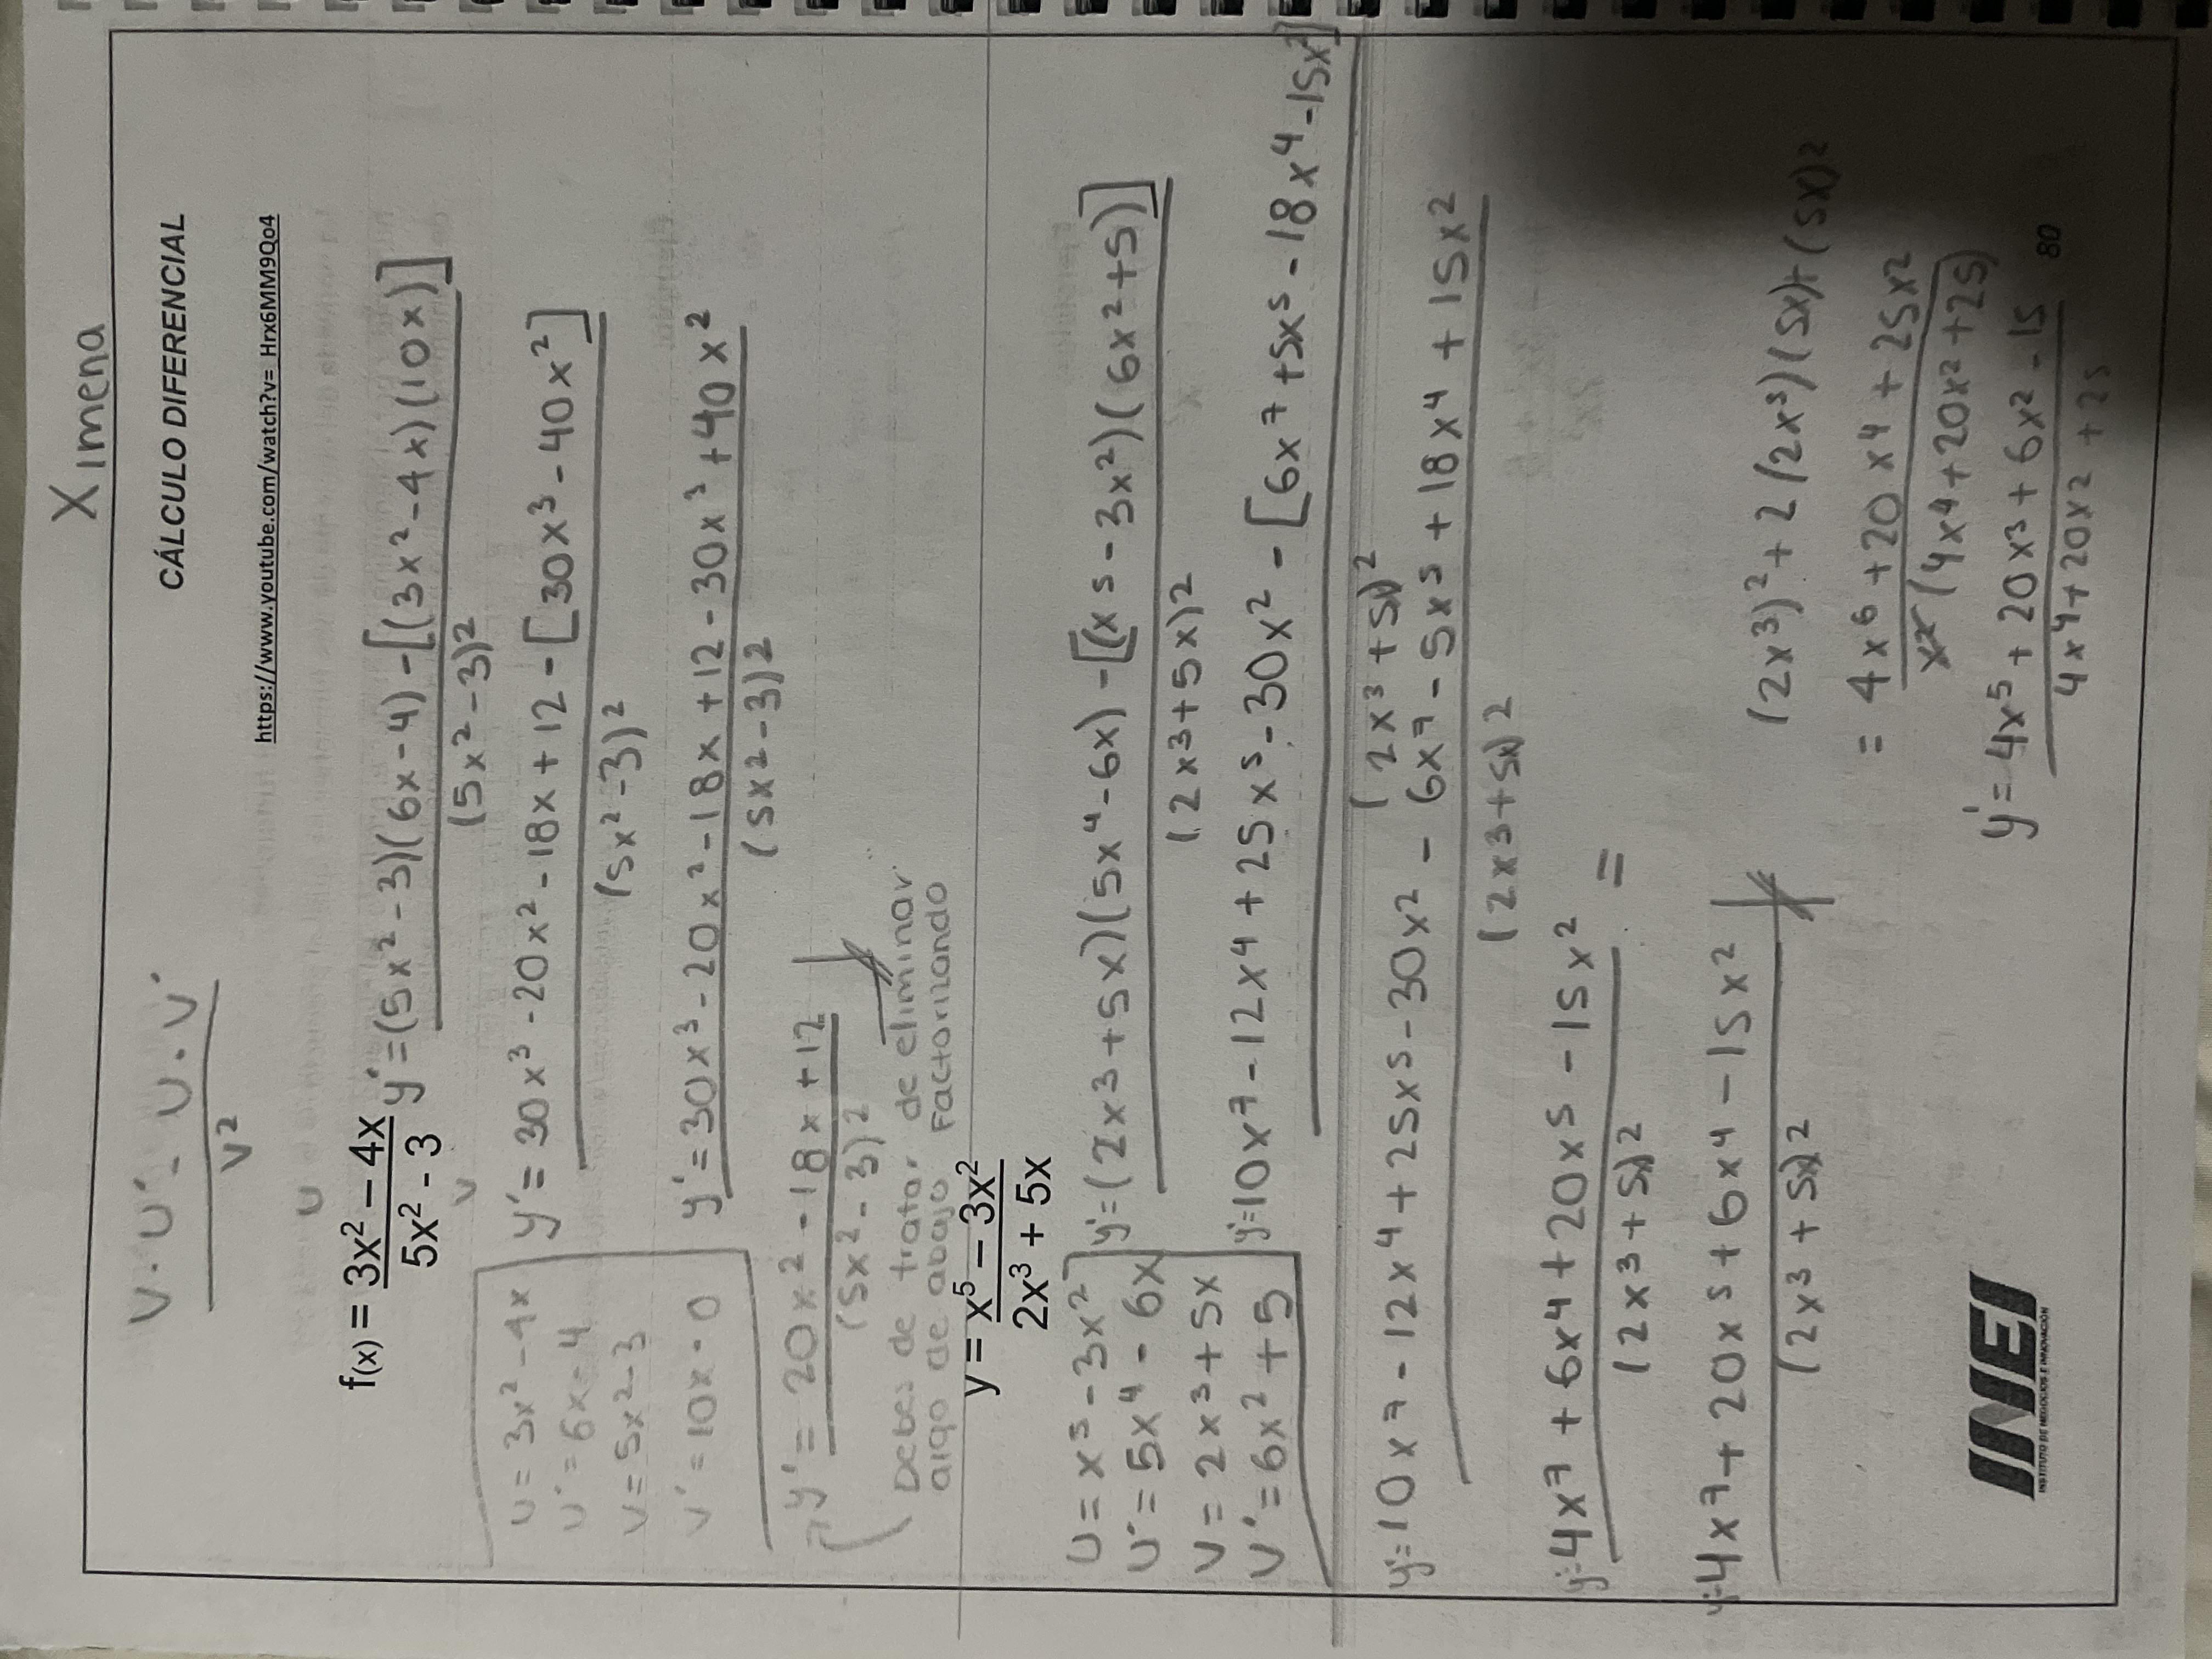 Ximena
V·U' - U·V'
V²
CÁLCULO DIFERENCIAL
https://www.youtube.com/watch?v= Hrx6MM9Qo4
U
f(x) = 3x² – 4x
5x² - 3
V
y'=(5x²-3)(6x-4)-[(3x²-4x)(10x)]
(5x²-3)²
U=3x²-4x
U'=6x-4
V=5x²-3
V'=10x-0
y'=30x³-20x²-18x+12-[30x³-40x²]
(5x²-3)²
y'=30x³-20x²-18x+12-30x³+40x²
(5x²-3)²
y'=20x²-18x+12
(5x²-3)²
Debes de tratar de eliminar
algo de abajo Factorizando
y = x⁵ – 3x²
2x³ + 5x
U=x⁵-3x²
U'=5x⁴-6x
V=2x³+5x
V'=6x²+5
y'=(2x³+5x)(5x⁴-6x)-[(x⁵-3x²)(6x²+5)]
(2x³+5x)²
y'=10x⁷-12x⁴+25x⁵-30x²-[6x⁷+5x⁵-18x⁴-15x²]
(2x³+5x)²
y'=10x⁷-12x⁴+25x⁵-30x²-6x⁷-5x⁵+18x⁴+15x²
(2x³+5x)²
y'=4x⁷+6x⁴+20x⁵-15x² =
(2x³+5x)²
y'=4x⁷+20x⁵+6x⁴-15x²
(2x³+5x)²
(2x³)²+2(2x³)(5x)+(5x)²
=4x⁶+20x⁴+25x²
x²(4x⁴+20x²+25)
y'=4x⁵+20x³+6x²-15
4x⁴+20x²+25
INEI
INSTITUTO DE NEGOCIOS E INNOVACIÓN
80